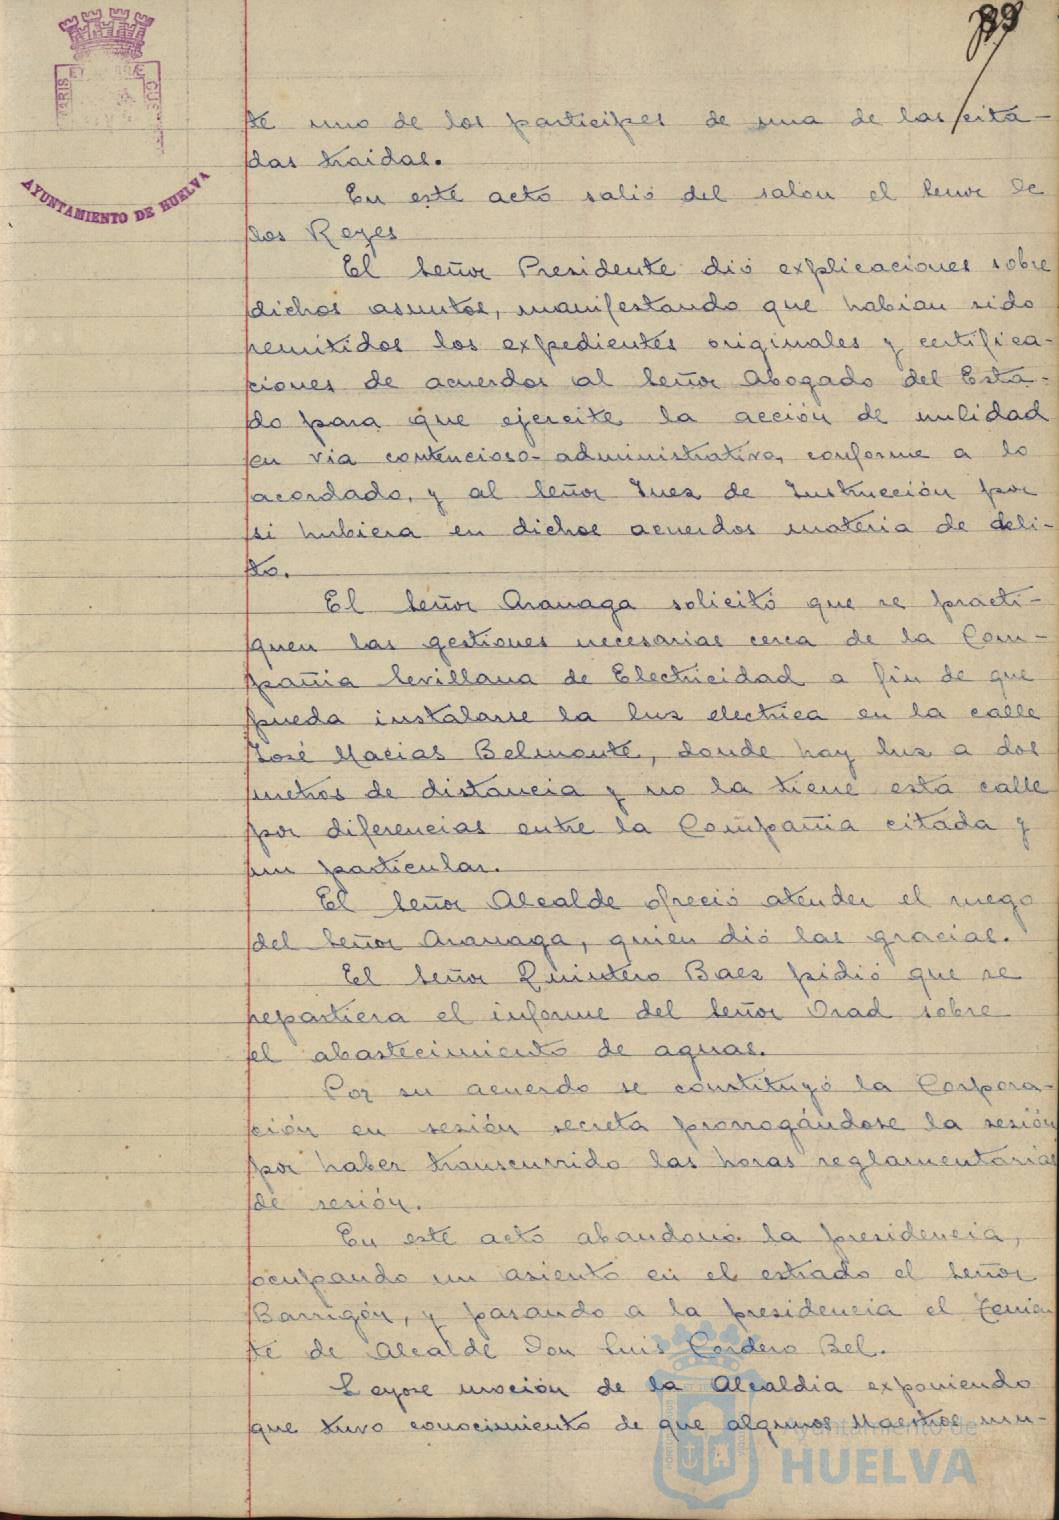 89
te uno de los participes de una de las cita-
das traidas.
En este acto salió del salon el Senor de
los Reyes
El Señor Presidente dió explicaciones sobre
dichos asuntos, manifestando que habian sido
remitidos los expedientes originales y certifica-
ciones de acuerdos al Señor Abogado del Esta-
do para que ejercite la acción de nulidad
en via contencioso-administrativa, conforme a lo
acordado, y al Señor Juez de Instrucción por
si hubiera en dichos acuerdos materia de deli-
to.
El Señor Aranaga solicitó que se practi-
quen las gestiones necesarias cerca de la Com-
pañia Sevillana de Electricidad a fin de que
pueda instalarse la luz electrica en la calle
José Macias Belmonte, donde hay luz a dos
metros de distancia y no la tiene esta calle
por diferencias entre la Compañia citada y
un particular.
El Señor Alcalde ofreció atender el ruego
del Señor Aranaga, quien dió las gracias.
El Señor Quintero Baez pidió que se
repartiera el informe del Señor Orad sobre
el abastecimiento de aguas.
Por su acuerdo se constituyó la Corpora-
ción en sesión secreta prorrogándose la sesión
por haber transcurrido las horas reglamentarias
de sesión.
En este acto abandonó la presidencia,
ocupando un asiento en el estrado el Señor
Barrigón, y pasando a la presidencia el Tenien
te de Alcalde Don Luis Cordero Bel.
Leyose moción de la Alcaldia exponiendo
que tuvo conocimiento de que algunos Maestros mu-
AYUNTAMIENTO DE HUELVA
Ayuntamiento de
HUELVA